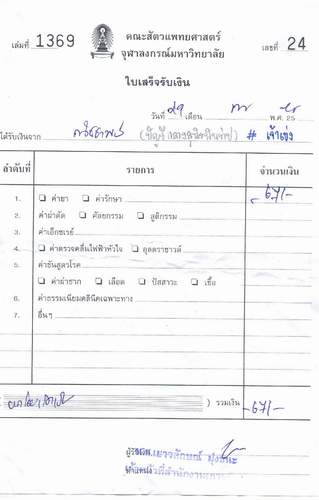 เล่มที่ 1369
คณะสัตวแพทยศาสตร์
จุฬาลงกรณ์มหาวิทยาลัย
เลขที่ 24
ใบเสร็จรับเงิน
วันที่ 29 เดือน พ.ศ. 25
ได้รับเงินจาก # เจ้าเฮง
ลำดับที่ รายการ จำนวนเงิน
1. ค่ายา ค่ารักษา 67/-
2. ค่าผ่าตัด ศัลยกรรม สูติกรรม
3. ค่าเอ็กซเรย์
4. ค่าตรวจคลื่นไฟฟ้าหัวใจ อุลตราซาวด์
5. ค่าชันสูตรโรค
ค่าผ่าซาก เลือด ปัสสาวะ เชื้อ
6. ค่าธรรมเนียมคลินิคเฉพาะทาง
7. อื่นๆ
) รวมเงิน -67/-